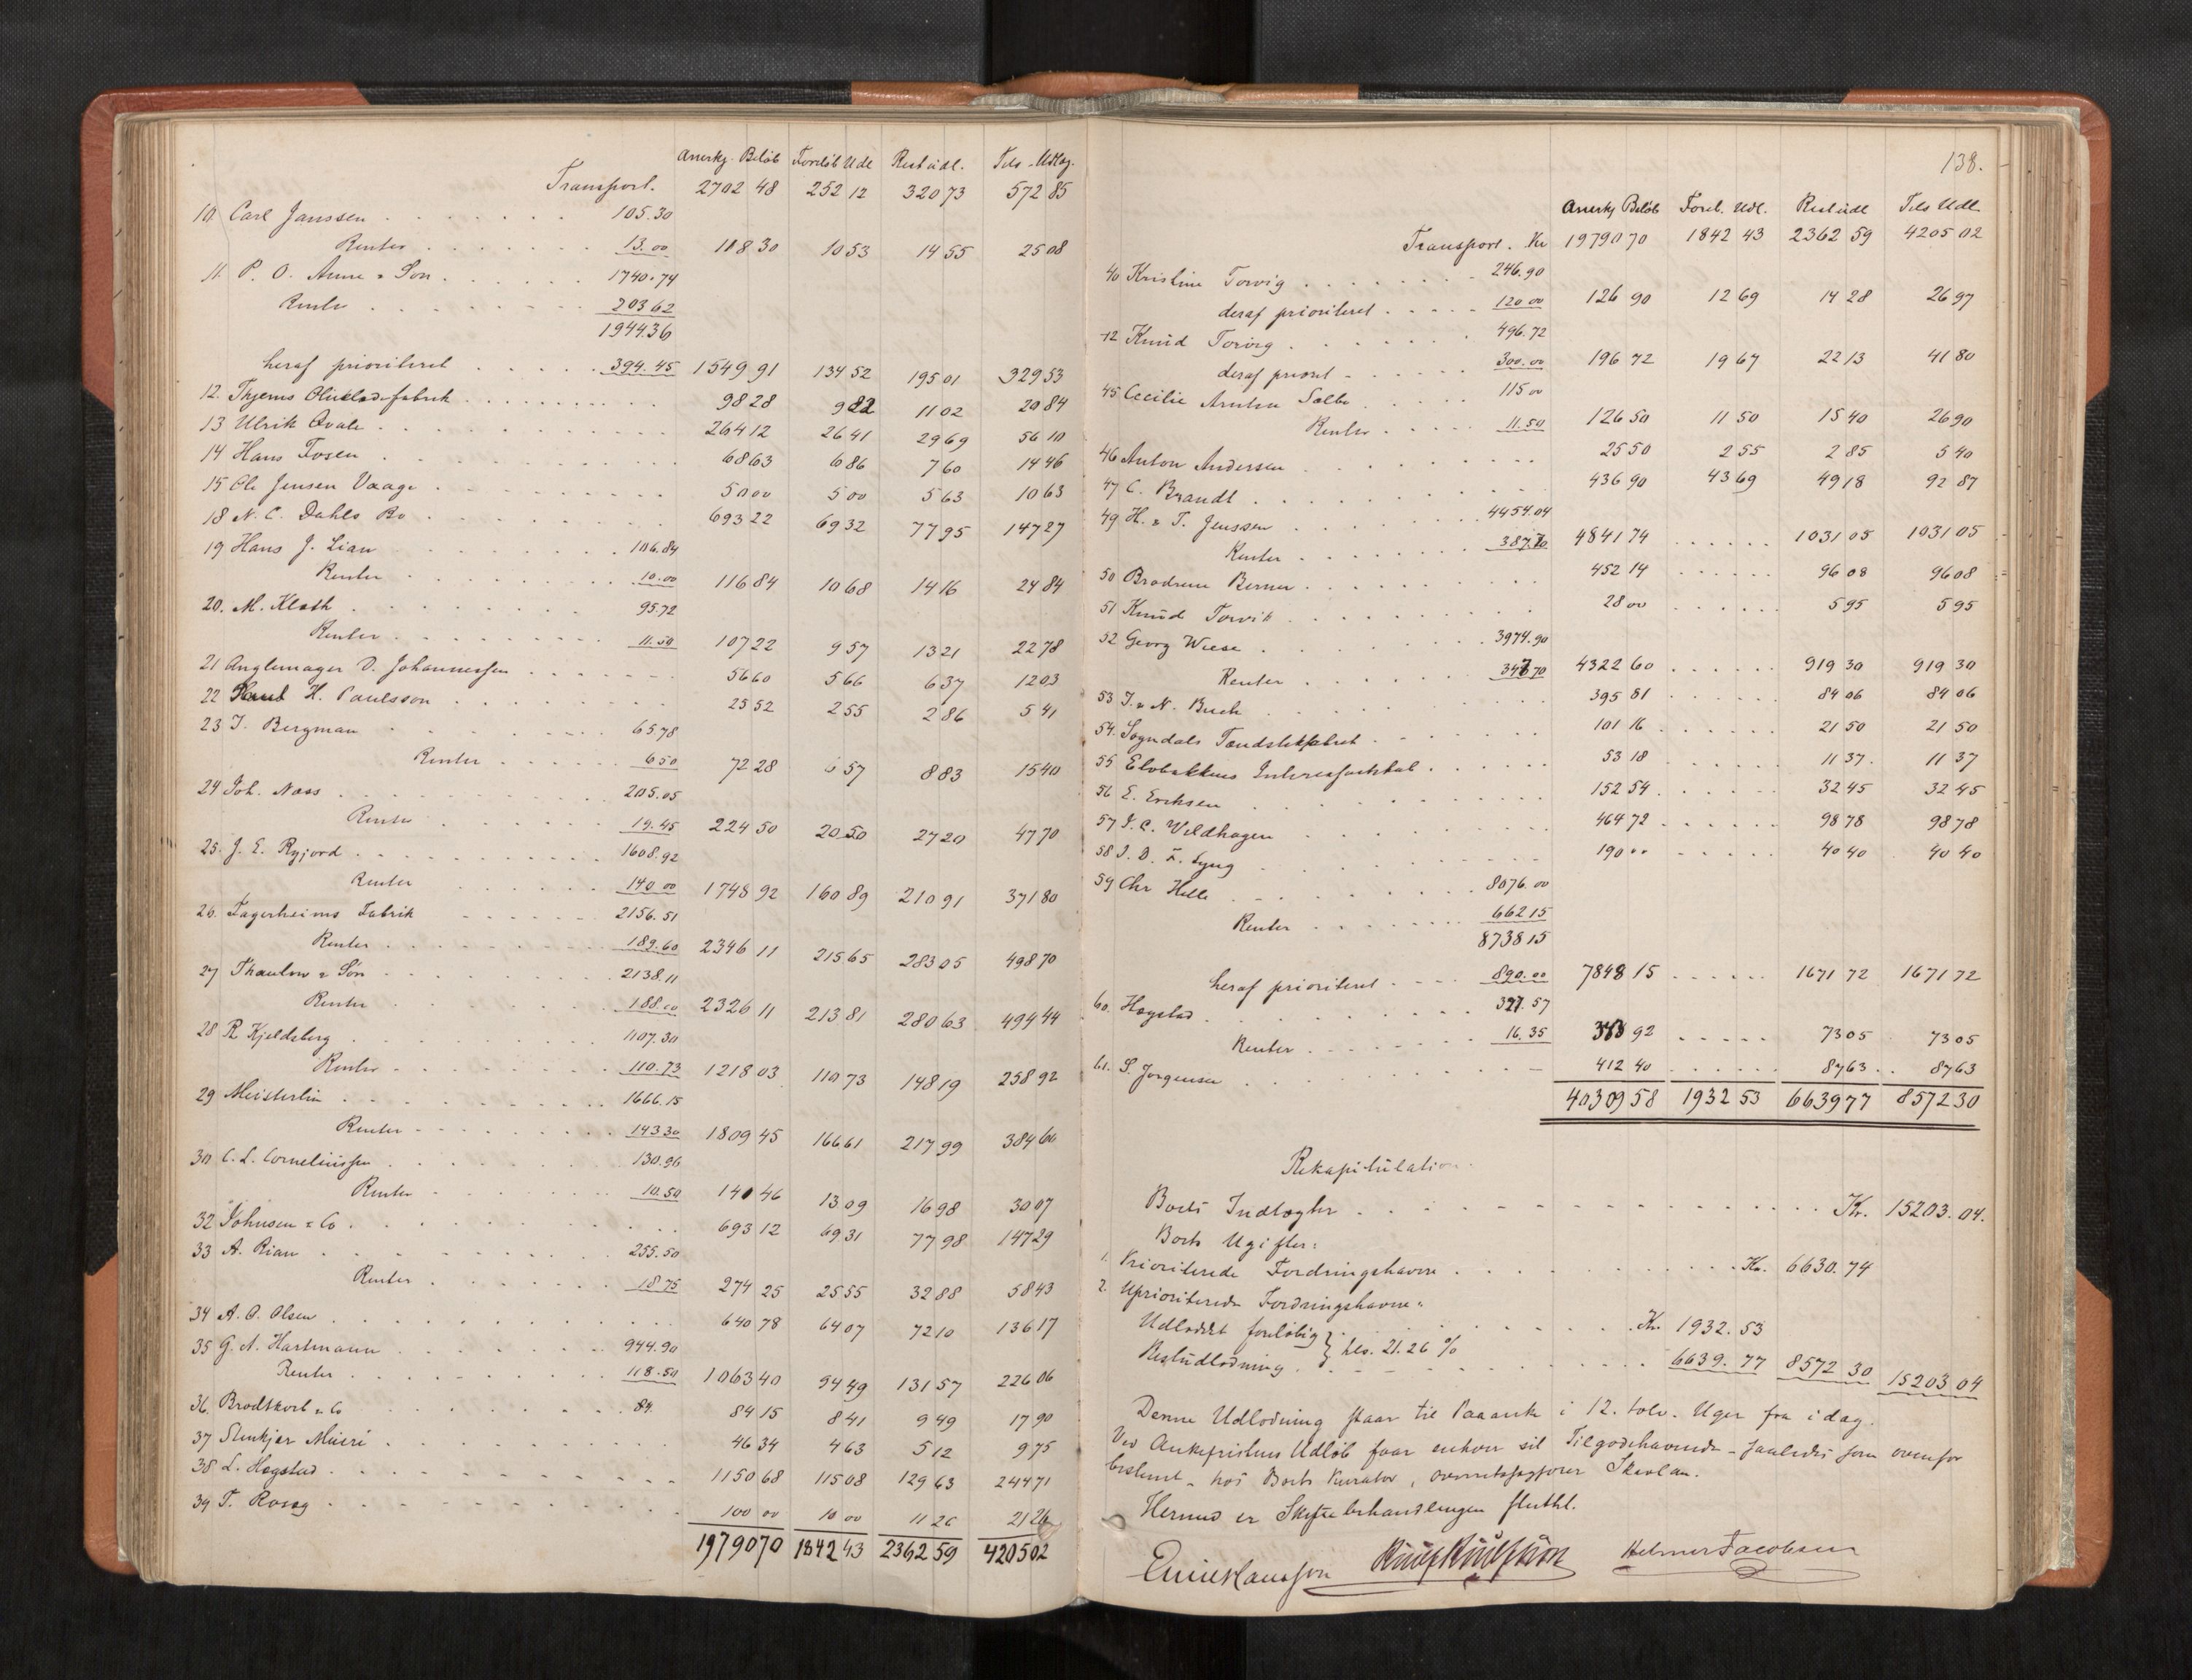 Anerkj. Beløb Foreløb Udl Restudl. Tils. Udlæg.
Transport. 2702 48 252 12 320 73 572 85
10. Carl Janssen 105.30
Renter 13.00 118 30 10 53 14 55 25 08
11. P. O. Aune & Søn 1740.74
Renter 203 62
1944.36
heraf prioriteret 394.45 1549 91 134 52 195 01 329 53
12. fabrik 98 28 9 82 11 02 20 84
13 Ulrik Qvale 264 12 26 41 29 69 56 10
14 Hans Fosen 68 63 6 86 7 60 14 46
15 Ole Jensen Vaage 50 00 5 00 5 63 10 63
18 N. C. Dahls Bo 693 22 69 32 77 95 147 27
19 Hans J. Lian 106.84
Renter 10.00 116 84 10 68 14 16 24 84
20. M. Kloth 95.72
Renter 11.50 107 22 9 57 13 21 22 78
21 D. Johannessen 56 60 5 66 6 37 12 03
22 H. Paulsson 25 52 2 55 2 86 5 41
23 I. Bergman 65.78
Renter 6 50 72 28 6 57 8 83 15 40
24 Joh. Næss 205.05
Renter 19.45 224 50 20 50 27 20 47 70
25. J. E. Ryjord 1608.92
Renter 140 00 1748 92 160 89 210 91 371 80
26. Fagerheims Fabrik 2156.51
Renter 189.60 2346 11 215 65 283 05 498 70
27 Thaulow & Søn 2138.11
Renter 188.00 2326 11 213 81 280 63 494 44
28 R. Kjeldsberg 1107.30
Renter 110.73 1218 03 110 73 148 19 258 92
29 Meisterlin 1666.15
Renter 143 30 1809 45 166 61 217 99 384 60
30 C. L. Corneliussen 130.96
Renter 10.50 140 46 13 09 16 98 30 07
32 Johnsen & Co 693 12 69 31 77 98 147 29
33 A. Rian 255.50
Renter 18 75 274 25 25 55 32 88 58 43
34 A. O. Olsen 640 78 64 07 72 10 136 17
35 G. A. Hartmann 944.90
Renter 118.50 1063 40 94 49 131 57 226 06
36. Brodtkorb & Co 84. 84 15 8 41 9 49 17 90
37 Stenkjær Mieri 46 34 4 63 5 12 9 75
38 L. Hegstad 1150 68 115 08 129 63 244 71
39 T. Rosøg 100 00 10 00 11 26 21 26
19790 70 1842 43 2362 59 4205 02
138.
Anerkj Beløb Forel. Udl. Restudl Tils Udl
Transport. Kr 19790 70 1842 43 2362 59 4205 02
40 Kristine Torvig 246.90
deraf prioriteret 120 00 126 90 12 69 14 28 26 97
42 Knud Torvig 496.72
deraf priorit 300.00 196 72 19 67 22 13 41 80
45 Cecilie Arntsen Selbo 115 00
Renter 11.50 126 50 11 50 15 40 26 90
46 Anton Andersen 25 50 2 55 2 85 5 40
47 C. Brandt 436 90 43 69 49 18 92 87
49 H. & T. Jenssen 4454.04
Renter 387.70 4841 74 1031 05 1031 05
50 Brødrene Berner 452 14 96 08 96 08
51 Knud Torvik 28 00 5 95 5 95
52 Georg Wiese 3974.90
Renter 347 70 4322 60 919 30 919 30
53 I. & N. Buch 395 81 84 06 84 06
54. Sogndals Tændstikfabrik 101 16 21 50 21 50
55 Elvebakkens Interessentskab 53 18 11 37. 11 37
56 E. Erichsen 152 54 32 45 32 45
57 J. C. Wildhagen 464 72 98 78 98 78
58 I. D. F. Lyng 190 00 40 40 40 40
59 Chr Helle 8076.00
Renter 662 15
8738 15
heraf prioriteret 890.00 7848 15 1671 72 1671 72
60. Hegstad 327.57
Renter 16.35 343 92 73 05 73 05
61. S. Jørgensen 412 40 87 63 87 63
40309 58 1932 53 6639 77 8572 30
Rekapitulation.
Boets Indtægter Kr. 15203.04.
Boets Ugifter:
1. Prioriterede Fordringshavere Kr. 6630.74
2. Uprioriterede Fordringshavere:
Udloddet foreløbig } Kr. 1932.53
Restudlodning } tils. 21.26 % 6639.77 8572 30 15203 04
Denne Udlodning staar til Paaanke i 12. tolv. Uger fra idag.
Ved Ankefristens Udløb faar enhver sit Tilgodehavende - saaledes som ovenfor
bestemt - hos Boets Kurator, overretssagfører Skavlan.
Hermed er Skiftebehandlingen sluttet.
Helmer Jacobsen